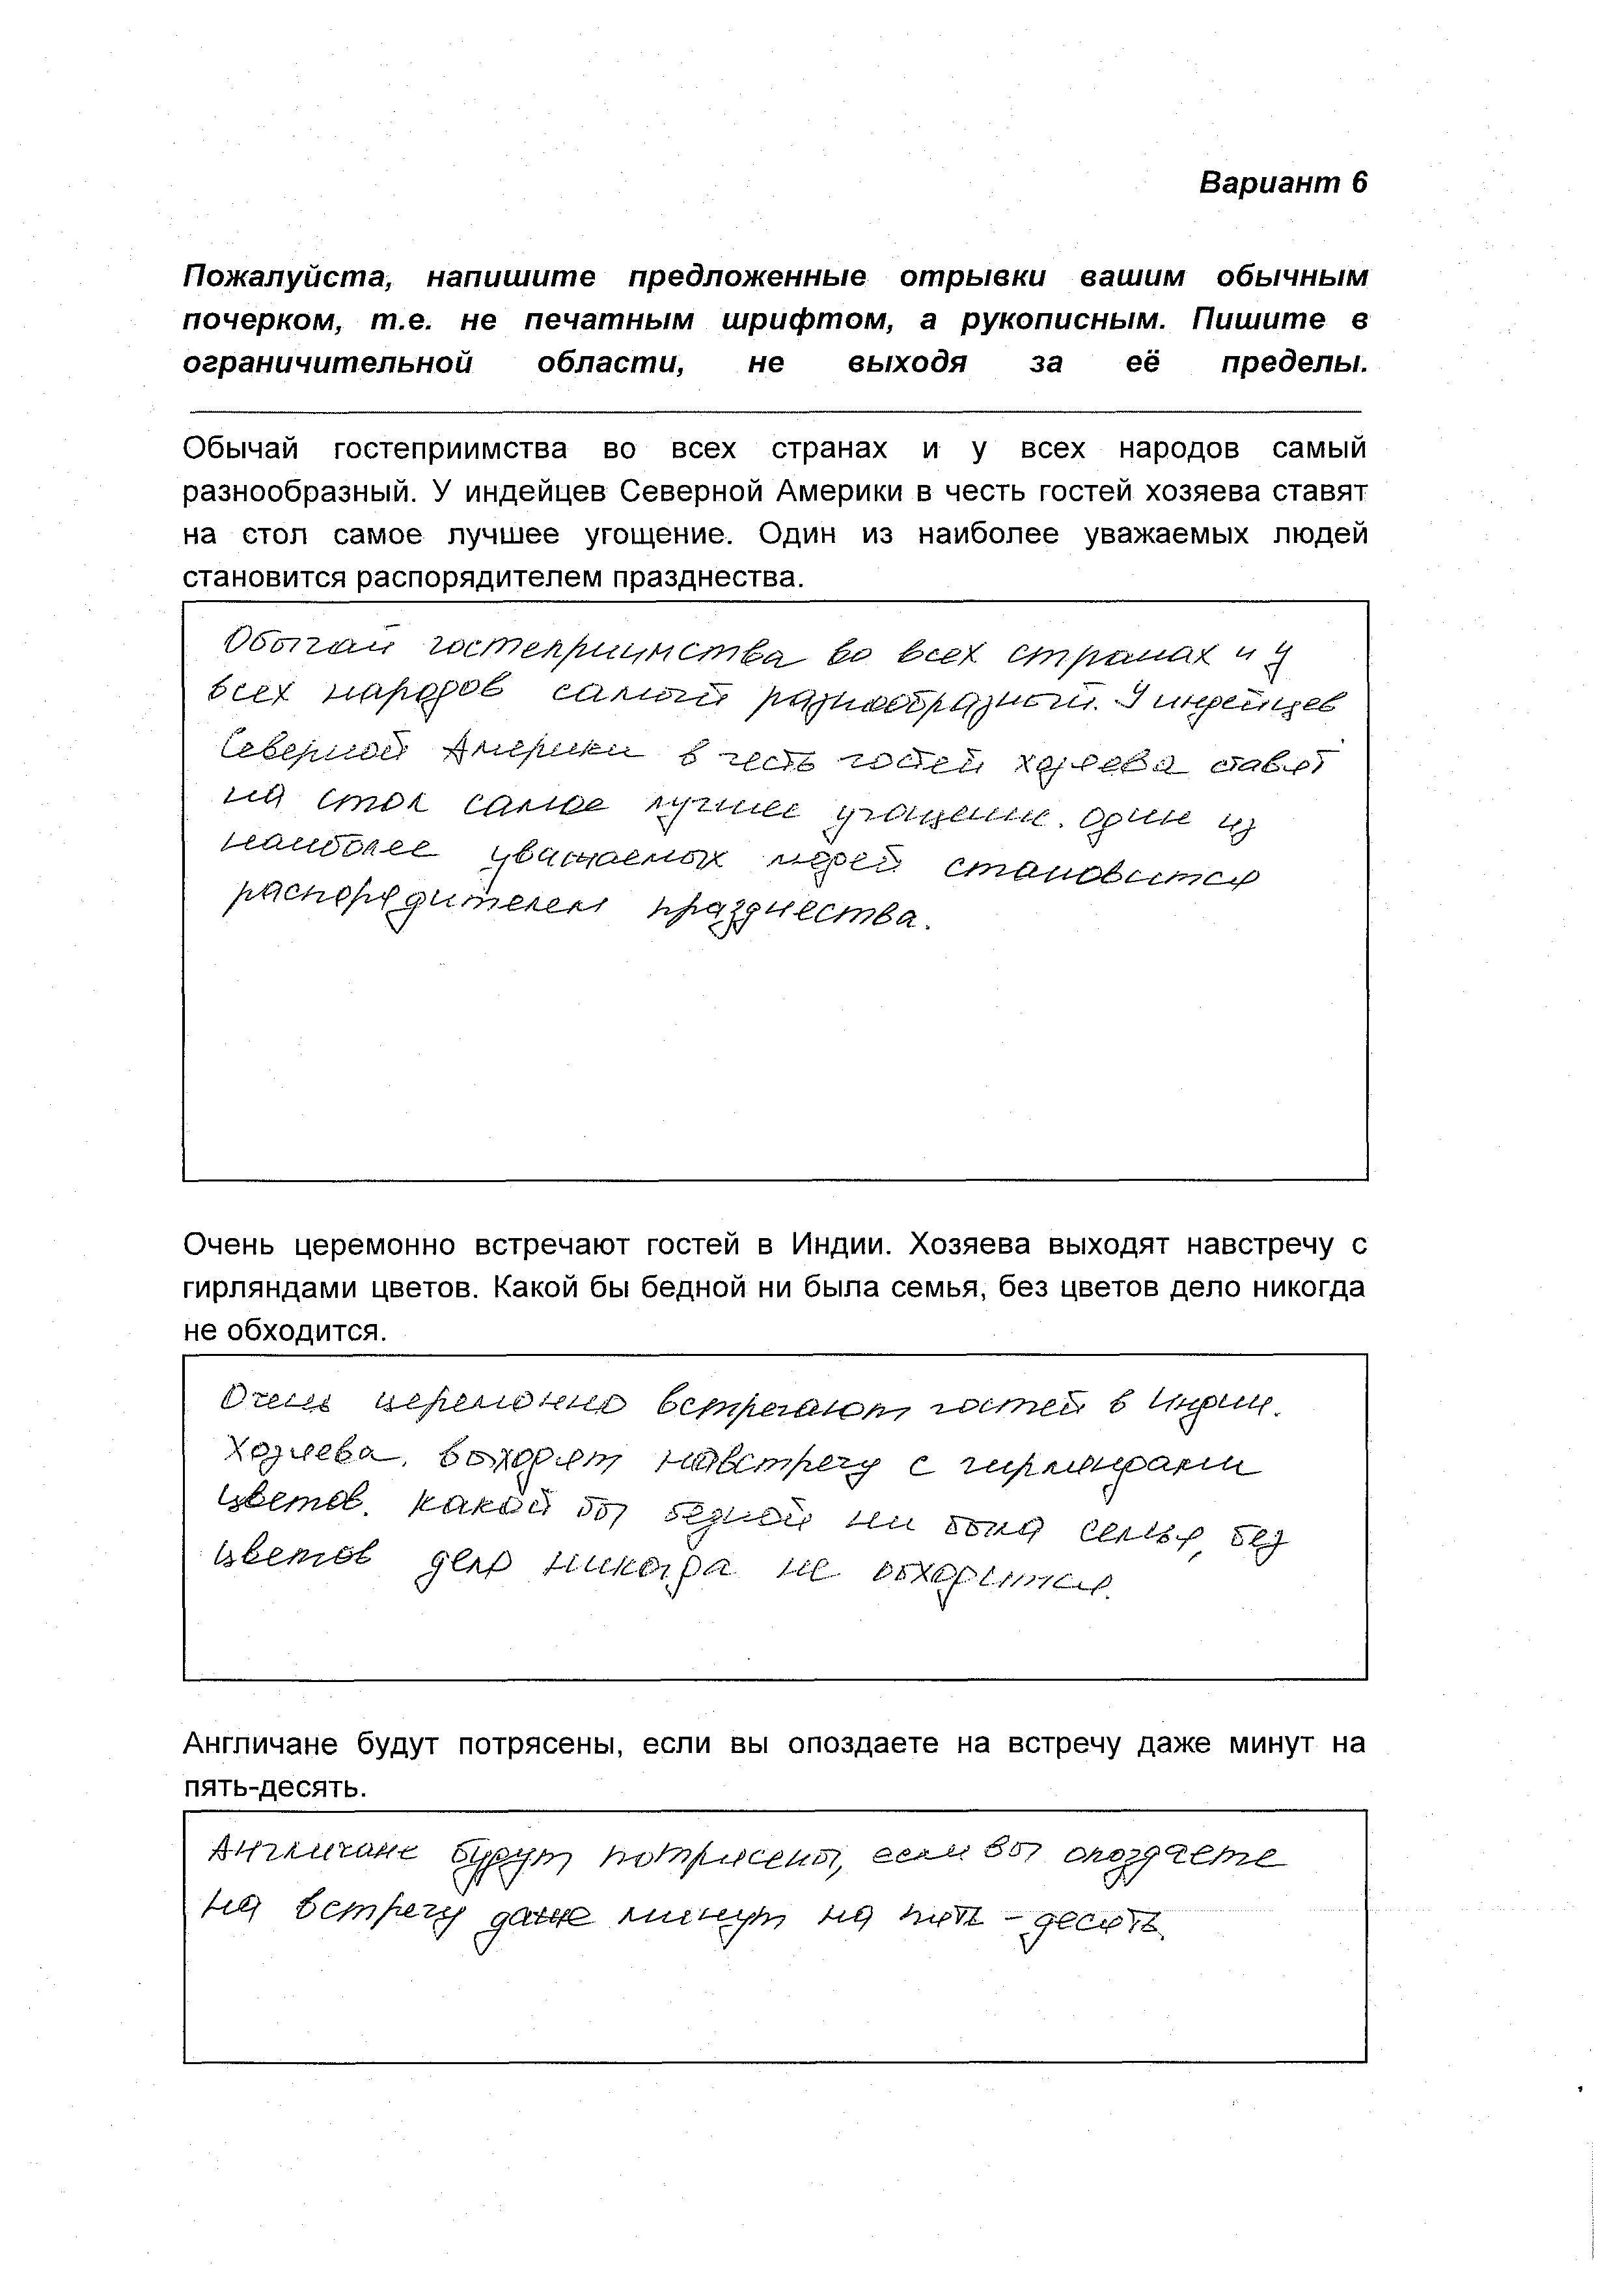 Вариант 6
Пожалуйста, напишите предложенные отрывки вашим обычным
почерком, т.е. не печатным шрифтом, а рукописным. Пишите в
ограничительной области, не выходя за её пределы.
Обычай гостеприимства во всех странах и у всех народов самый
разнообразный. У индейцев Северной Америки в честь гостей хозяева ставят
на стол самое лучшее угощение. Один из наиболее уважаемых людей
становится распорядителем празднества.
Обычай гостеприимства во всех странах и у
всех народов самый разнообразный. У индейцев
Северной Америки в честь гостей хозяева ставят
на стол самое лучшее угощение. Один из
наиболее уважаемых людей становится
распорядителем празднества.
Очень церемонно встречают гостей в Индии. Хозяева выходят навстречу с
гирляндами цветов. Какой бы бедной ни была семья, без цветов дело никогда
не обходится.
Очень церемонно встречают гостей в Индии.
Хозяева выходят навстречу с гирляндами
цветов. Какой бы бедной ни была семья, без
цветов дело никогда не обходится.
Англичане будут потрясены, если вы опоздаете на встречу даже минут на
пять-десять.
Англичане будут потрясены, если вы опоздаете
на встречу даже минут на пять - десять.